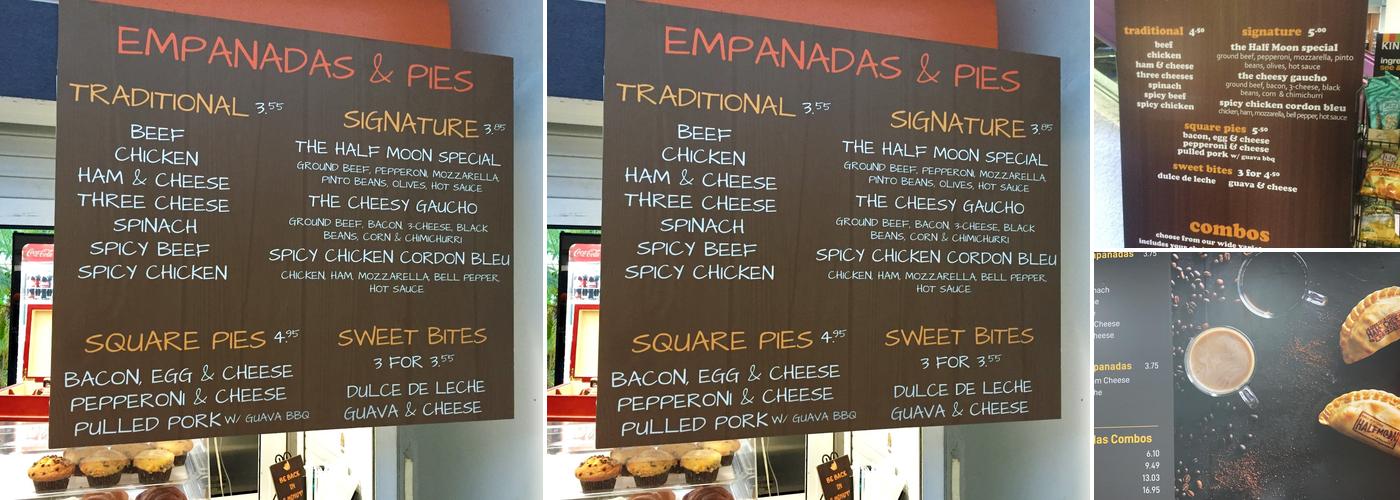 EMPANADAS & PIES
TRADITIONAL 3.55
BEEF
CHICKEN
HAM & CHEESE
THREE CHEESE
SPINACH
SPICY BEEF
SPICY CHICKEN
SIGNATURE 3.85
THE HALF MOON SPECIAL
GROUND BEEF, PEPPERONI, MOZZARELLA,
PINTO BEANS, OLIVES, HOT SAUCE
THE CHEESY GAUCHO
GROUND BEEF, BACON, 3-CHEESE, BLACK
BEANS, CORN & CHIMICHURRI
SPICY CHICKEN CORDON BLEU
CHICKEN, HAM, MOZZARELLA, BELL PEPPER,
HOT SAUCE
SQUARE PIES 4.95
BACON, EGG & CHEESE
PEPPERONI & CHEESE
PULLED PORK W/ GUAVA BBQ
SWEET BITES
3 FOR 3.55
DULCE DE LECHE
GUAVA & CHEESE
Coca-Cola
BE BACK
IN
EMPANADAS & PIES
TRADITIONAL 3.55
BEEF
CHICKEN
HAM & CHEESE
THREE CHEESE
SPINACH
SPICY BEEF
SPICY CHICKEN
SIGNATURE 3.85
THE HALF MOON SPECIAL
GROUND BEEF, PEPPERONI, MOZZARELLA,
PINTO BEANS, OLIVES, HOT SAUCE
THE CHEESY GAUCHO
GROUND BEEF, BACON, 3-CHEESE, BLACK
BEANS, CORN & CHIMICHURRI
SPICY CHICKEN CORDON BLEU
CHICKEN, HAM, MOZZARELLA, BELL PEPPER,
HOT SAUCE
SQUARE PIES 4.95
BACON, EGG & CHEESE
PEPPERONI & CHEESE
PULLED PORK W/ GUAVA BBQ
SWEET BITES
3 FOR 3.55
DULCE DE LECHE
GUAVA & CHEESE
Coca-Cola
BE BACK
IN
traditional 4.50
beef
chicken
ham & cheese
three cheeses
spinach
spicy beef
spicy chicken
signature 5.00
the Half Moon special
ground beef, pepperoni, mozzarella, pinto
beans, olives, hot sauce
the cheesy gaucho
ground beef, bacon, 3-cheese, black
beans, corn & chimichurri
spicy chicken cordon bleu
chicken, ham, mozzarella, bell pepper, hot sauce
square pies 5.50
bacon, egg & cheese
pepperoni & cheese
pulled pork w/ guava bbq
sweet bites 3 for 4.50
dulce de leche guava & cheese
combos
choose from our wide
KIN
ingre
mpanadas 3.75
nach
e
Cheese
heese
panadas 3.75
m Cheese
ne
das Combos
6.10
9.49
13.03
16.95
HALFMOON